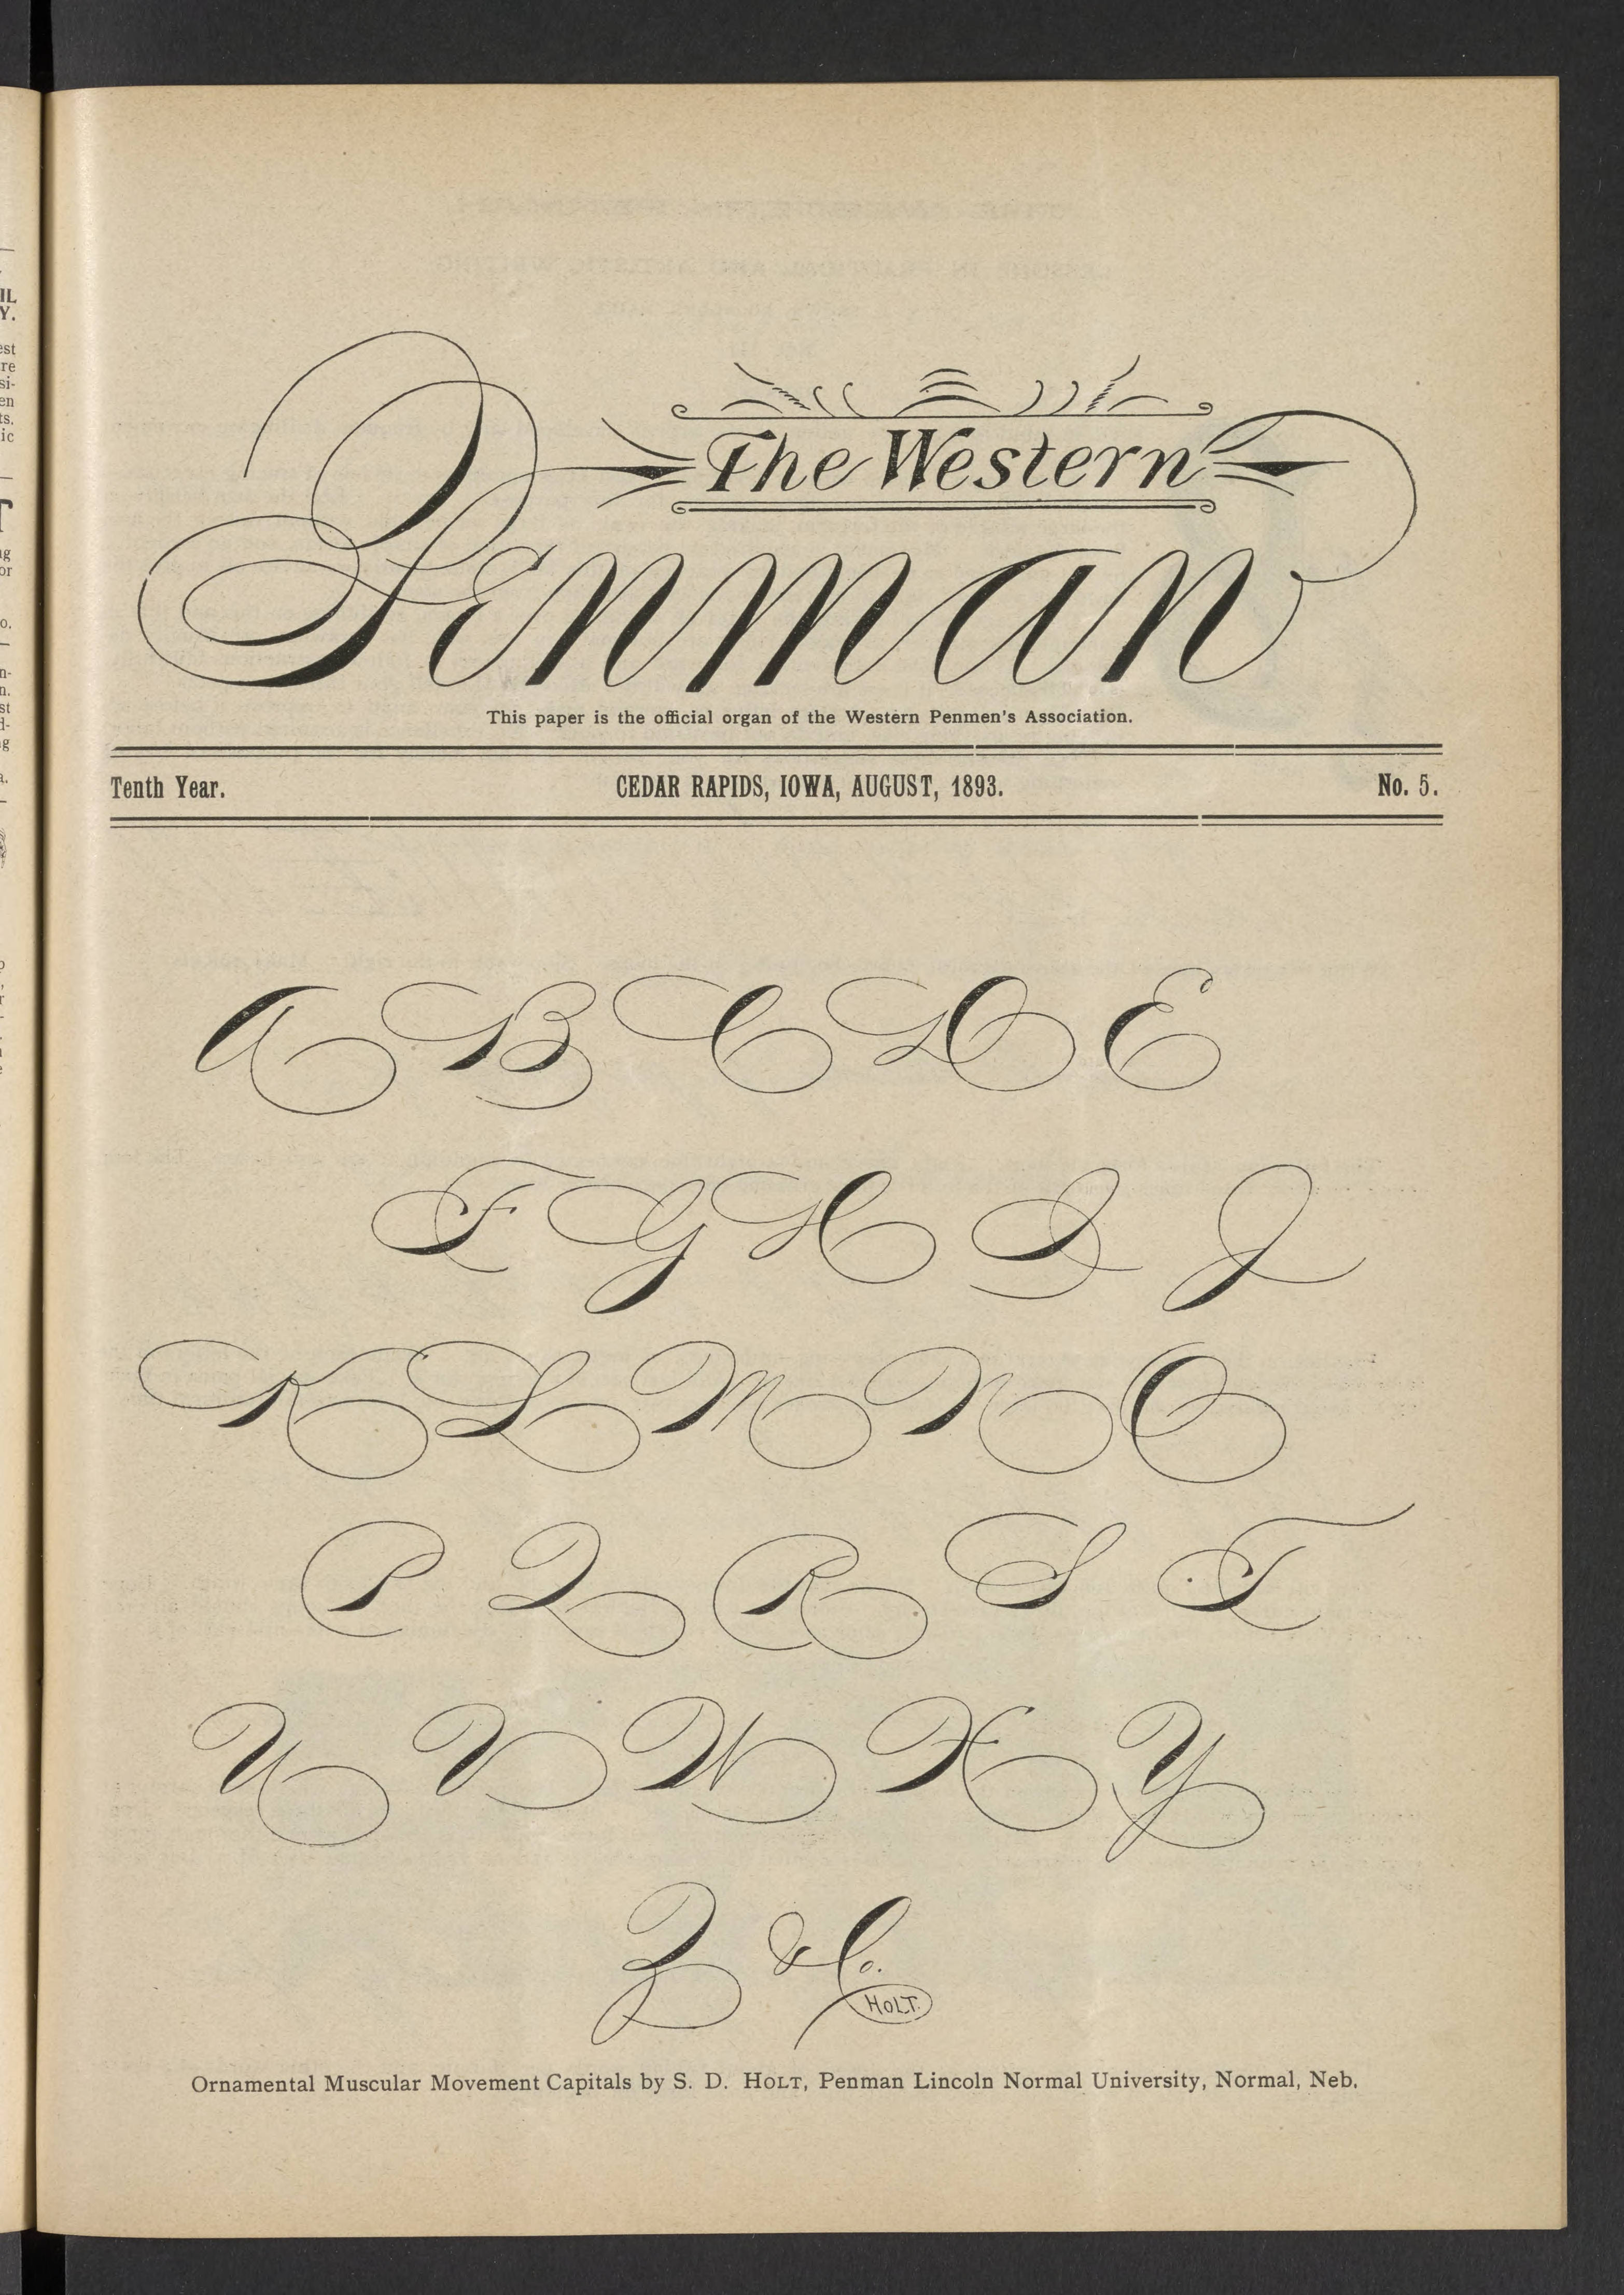 The Western
Penman
This paper is the official organ of the Western Penmen's Association.
Tenth Year. CEDAR RAPIDS, IOWA, AUGUST, 1893. No. 5.
A B C D E
F G H I J
K L M N O
P Q R S T
U V W X Y
Z & Co.
HOLT.
Ornamental Muscular Movement Capitals by S. D. HOLT, Penman Lincoln Normal University, Normal, Neb.